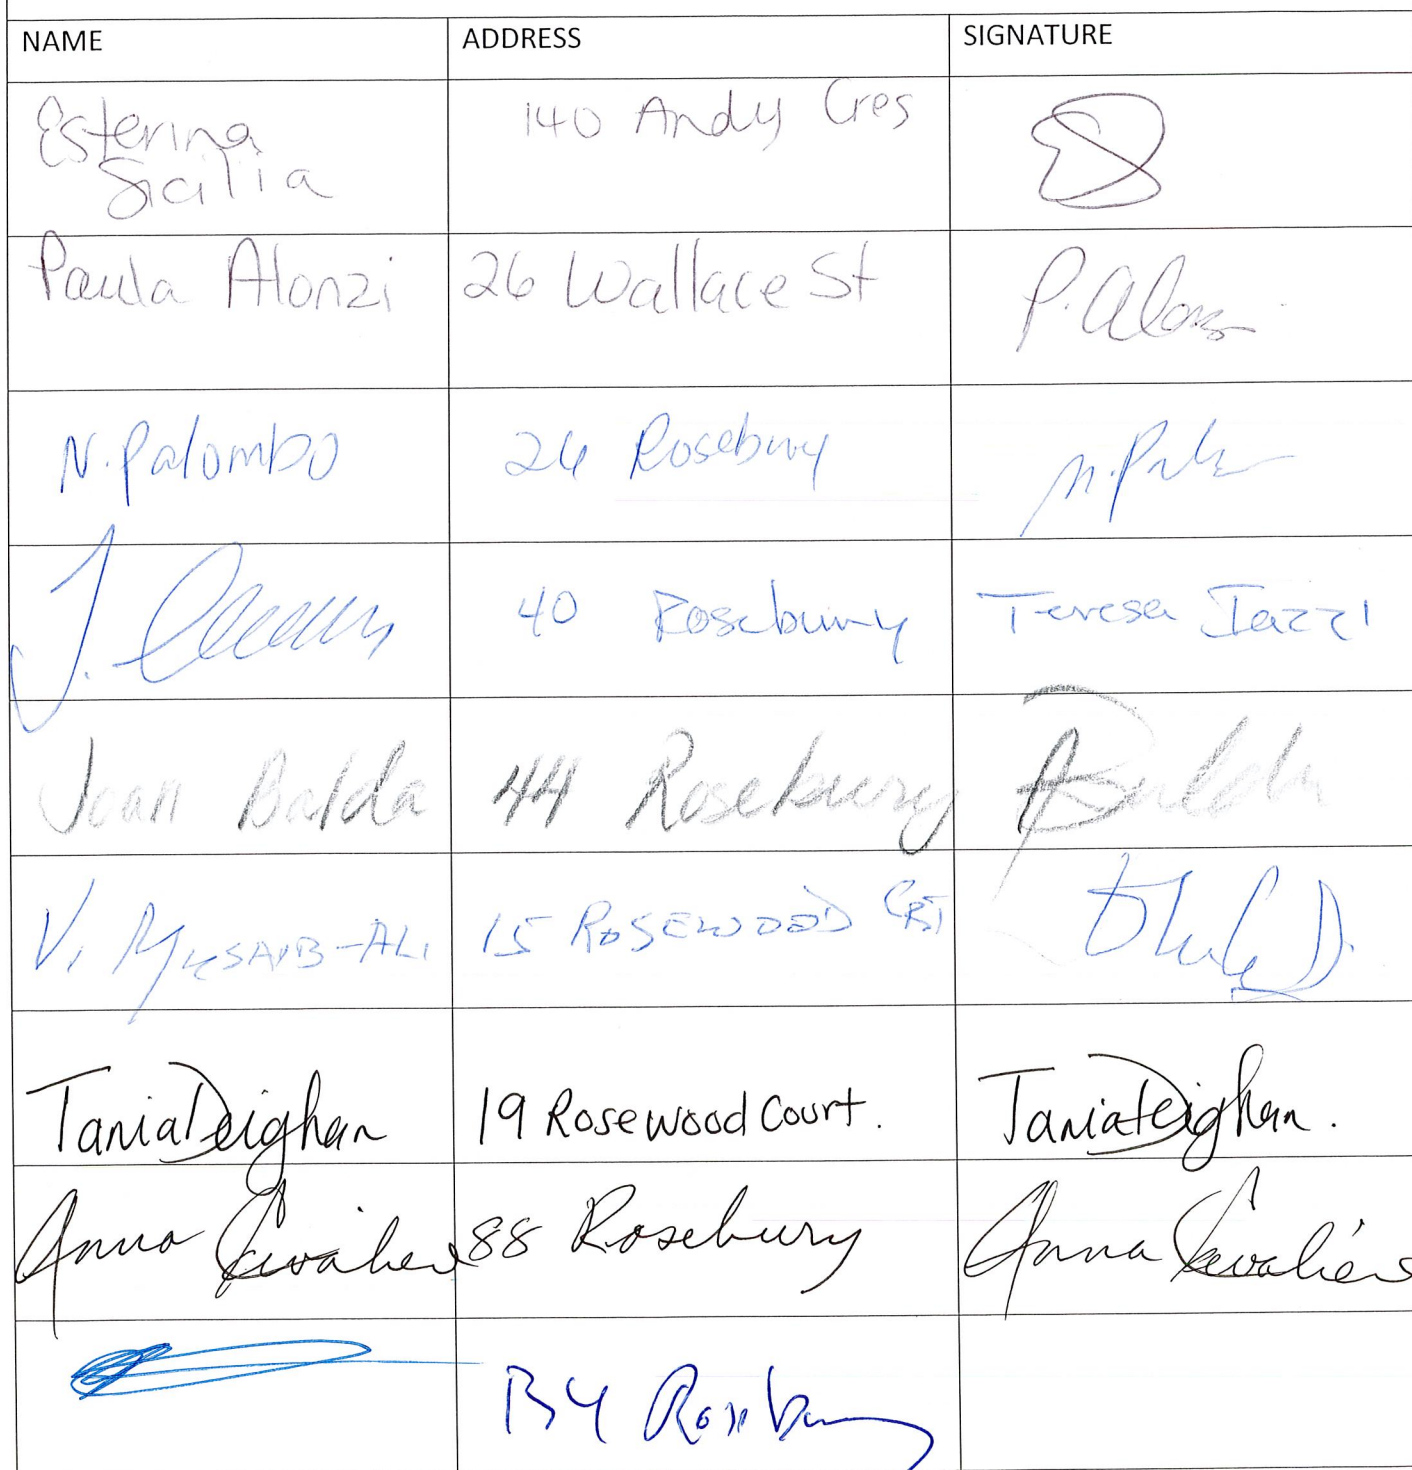 NAME ADDRESS SIGNATURE
Esterina 140 Andy Cres
Sicilia
Paula Alonzi 26 Wallace St P. Alonzi
N. Palombo 26 Rosebury
40 Rosebury Teresa Iazzi
Joan Balda 44 Rosebury Balda
V. Musaib-Ali 15 ROSEWOOD CRT
Tania Deighan 19 Rosewood Court. Tania Deighan.
Anna 88 Rosebury Anna
Rosebury